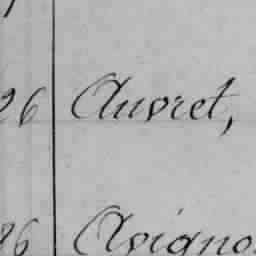 26 Auvret,
86 Avigno